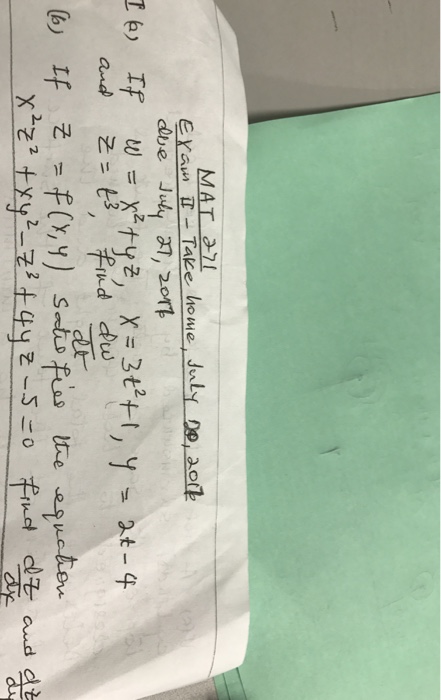 MAT 271
Exam II - Take home, July 20, 2017
due July 27, 2017
I (a) If W = x² + yz, x = 3t² + 1, y = 2t - 4
and z = t³, find dw/dt
(b) If z = f(x, y) satisfies the equation
x²z² + xy² - z³ + 4yz - 5 = 0 find dz/dx and dz/dy